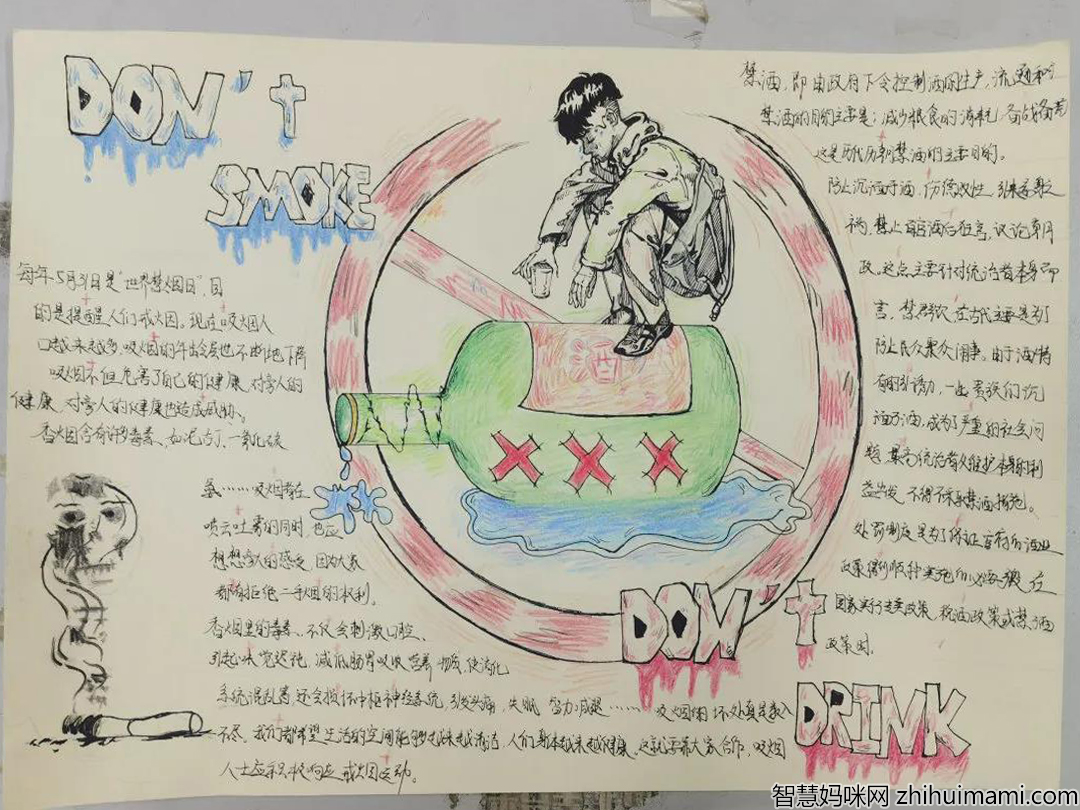 DON't
SMOKE
每年5月31日是“世界禁烟日”,目
的是提醒人们戒烟。现在吸烟人
口越来越多,吸烟的年龄层也不断地下降
吸烟不但危害了自己的健康,对旁人的
健康,对旁人的健康也造成威胁。
香烟含有许多毒素,如尼古丁、一氧化碳
氨……吸烟者在
喷云吐雾的同时,也应
想想旁人的感受,因为大家
都有拒绝二手烟的权利。
香烟里的毒素、不仅会刺激口腔、
引起味觉迟钝,减低肠胃吸收营养物质,使消化
系统混乱害,还会损坏中枢神经系统,引发头痛,失眠,智力减退……吸烟的坏处真是数入
不尽,我们都希望生活的空间能够越来越清洁,人们身体越来越健康,这就要靠大家合作,吸烟
人士应积极响应戒烟运动。
酒
禁酒,即由政府下令控制酒的生产,流通和
禁酒的目的主要是:减少粮食的消耗,备战备荒
这是历代历和禁酒的主要目的。
防止沉湎于酒,伤德败性,引来杀身之
祸,禁止百官酒后狂言,议论朝
政。这点主要针对统治者本身而
言,禁群饮,在古代主要是为了
防止民众聚众闹事。由于酒特
有的引诱力,一些贵族们沉
湎于酒,成为了严重的社会问
题,最高统治者从维护本身的利
益出发,不得不采取禁酒措施。
处罚制度是为了保证官府的酒业
政策得以顺利实施的必要
国家实行专卖政策,税酒政策或禁酒
政策时
DON't
DRINK
智慧妈咪网 zhihuimami.com